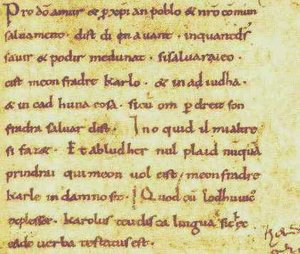 Pro dō amur & ꝑ xp̄ian poblo & nr̄o cōmun
saluament. dist di en auant. inquantdſ
sauir & podir medunat. sisaluaraieo
cist meon fradre karlo. & in ad iudha
& in cad huna cosa. sicū om ꝑ dreit son
fradra saluar dist. Ino quid il mialtre
si fazet. Et abludher nul plaid nūquā
prindrai qui meon uol cist. meonfradre
karle in damno sit. Quod cū lodhuuic
explesset. karolus teudisca lingua
eadē uerba testatus est.